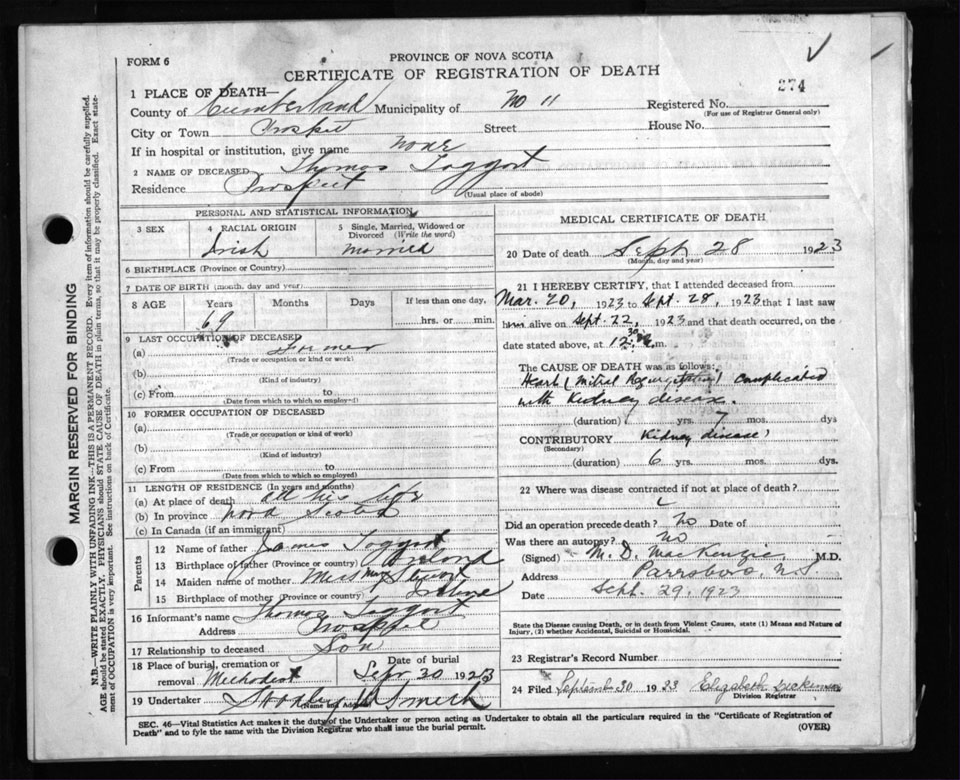 FORM 6
PROVINCE OF NOVA SCOTIA
CERTIFICATE OF REGISTRATION OF DEATH
274
1 PLACE OF DEATH—
County of Cumberland Municipality of No 11 Registered No.
(For use of Registrar General only)
City or Town Prospect Street House No.
If in hospital or institution, give name None
2 NAME OF DECEASED Thomas Taggart
Residence Prospect
(Usual place of abode)
PERSONAL AND STATISTICAL INFORMATION
3 SEX
4 RACIAL ORIGIN
Irish
5 Single, Married, Widowed or Divorced (Write the word)
Married
6 BIRTHPLACE (Province or Country)
7 DATE OF BIRTH (month, day and year)
8 AGE Years Months Days If less than one day,
69 hrs. or min.
9 LAST OCCUPATION OF DECEASED
(a) Farmer
(Trade or occupation or kind or work)
(b)
(Kind of industry)
(c) From to
(Date from which to which so employed)
10 FORMER OCCUPATION OF DECEASED
(a)
(Trade or occupation or kind of work)
(b)
(Kind of industry)
(c) From to
(Date from which to which so employed)
11 LENGTH OF RESIDENCE (In years and months)
(a) At place of death all his life
(b) In province Nova Scotia
(c) In Canada (if an immigrant)
Parents
12 Name of father James Taggart
13 Birthplace of father (Province or country) Ireland
14 Maiden name of mother Miss May Stewart
15 Birthplace of mother (Province or country)
16 Informant's name Thomas Taggart
Address Prospect
17 Relationship to deceased Son
18 Place of burial, cremation or removal Methodist
Date of burial
Sep 30 1923
19 Undertaker Stanley Smith
(Name and Address)
MEDICAL CERTIFICATE OF DEATH
20 Date of death Sept 28 1923
(Month, day and year)
21 I HEREBY CERTIFY, that I attended deceased from
Mar. 20, 1923 to Sept. 28, 1923 that I last saw
him alive on Sept. 22, 1923 and that death occurred, on the
date stated above, at 12.30 m.
The CAUSE OF DEATH was as follows:
Heart (Mitral Regurgitation) complicated
with Kidney disease.
(duration) 7 yrs. mos. dys.
CONTRIBUTORY Kidney disease
(Secondary)
(duration) 6 yrs. mos. dys.
22 Where was disease contracted if not at place of death?
Did an operation precede death? No Date of
Was there an autopsy? No
(Signed) M. D. MacKenzie, M.D.
Address Parrsboro, N.S
Date Sept. 29, 1923
State the Disease causing Death, or in death from Violent Causes, state (1) Means and Nature of Injury, (2) whether Accidental, Suicidal or Homicidal.
23 Registrar's Record Number
24 Filed September 30 1923 Elizabeth Dickinson
Division Registrar
SEC. 46—Vital Statistics Act makes it the duty of the Undertaker or person acting as Undertaker to obtain all the particulars required in the "Certificate of Registration of
Death" and to fyle the same with the Division Registrar who shall issue the burial permit. (OVER)
MARGIN RESERVED FOR BINDING
N.B.—WRITE PLAINLY WITH UNFADING INK—THIS IS A PERMANENT RECORD. Every item of information should be carefully supplied.
AGE should be stated EXACTLY. PHYSICIANS should STATE CAUSE OF DEATH in plain terms, so that it may be properly classified. Exact state-
ment of OCCUPATION is very important. See instructions on back of Certificate.